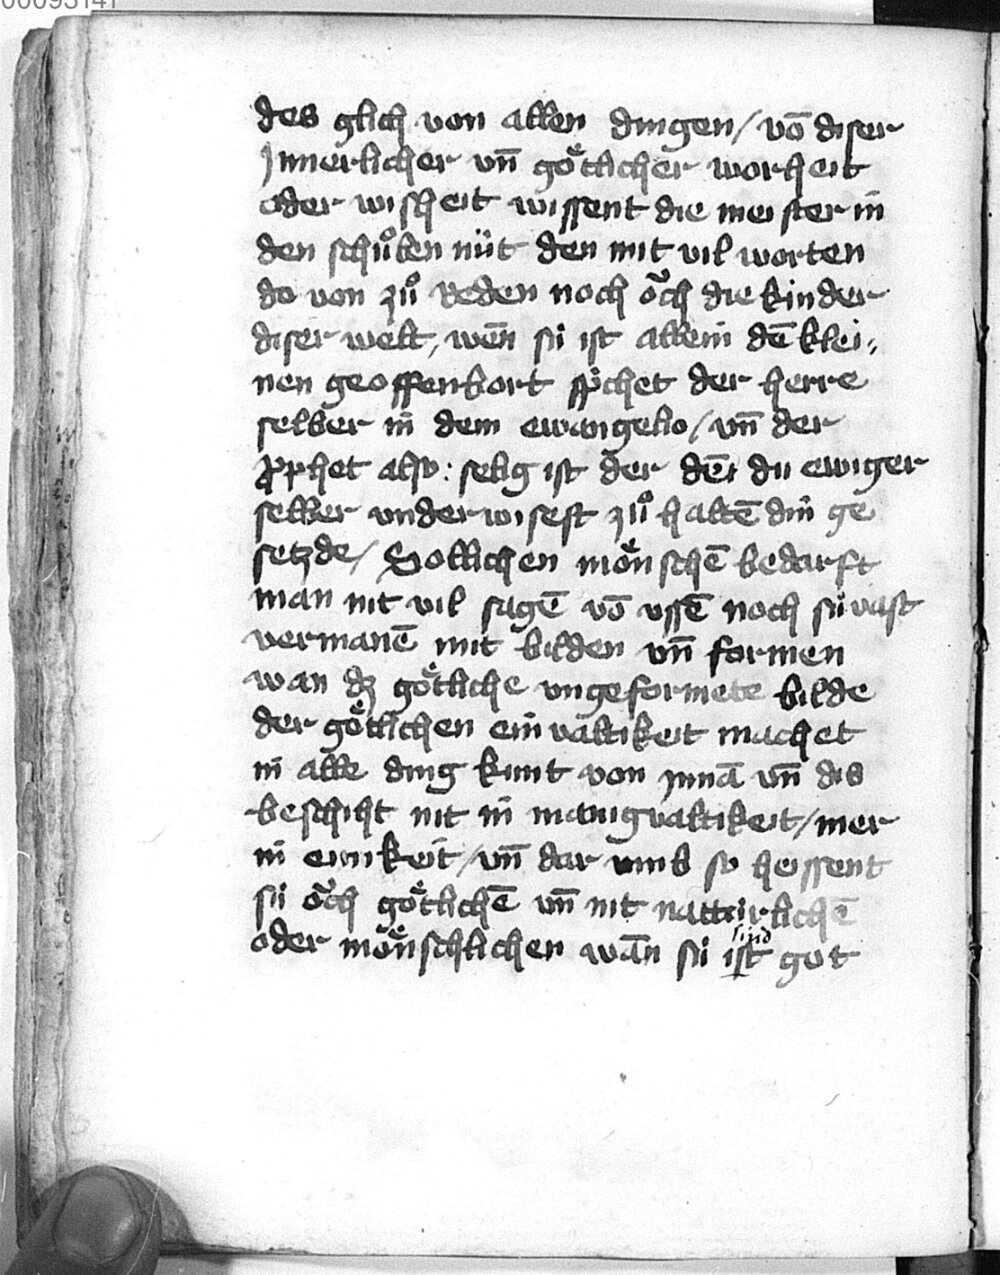 des glich von allen dingen / vō diser
Jnnerlicher vn̄ goͤtlicher worheit
oder wisheit wissent die meister in
den schuͦlen nüt den mit vil worten
do von zuͦ reden noch oͮch die kinder
diser welt, wēn sü ist allein dē klei„
nen geoffenbort sp̄chet der herre
selber in dem ewangelio / vn̄ der
p̄phet also: selig ist der dē du ewiger
selber vnderwisest zuͦ haltē din ge
setzde / Sollichen moͤnschē bedarft
man nit vil sagē vō vssē noch sü vast
vermanē mit bilden vn̄ formen
wan dz goͤtliche vngeformete bilde
der goͤtlichen einvaltikeit machet
in alle ding kunt von jnnā vn̄ dis
beschiht nit in manigvaltikeit / mer
in einikeit / vn̄ dar vmb so heissent
sü oͮch goͤtlichē vn̄ nit nattürlichē
oder moͤnschlichen wān sü ist sind got